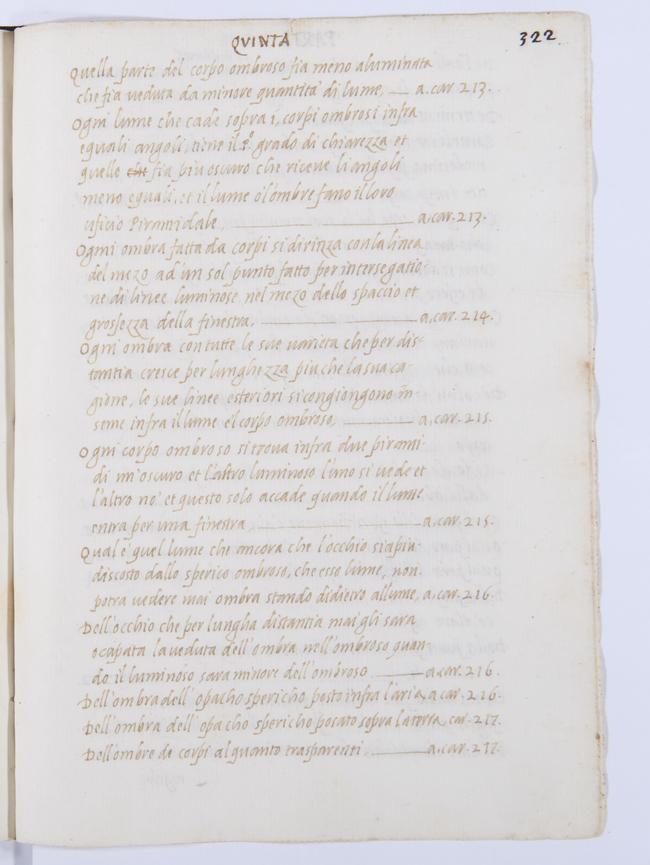 QUINTA
322
Quella parte del corpo ombroso fia meno aluminata
che fia veduta da minore quantità di lume, a.car.213.
Ogni lume che cade sopra i, corpi ombrosi infra
equali angoli, tiene il p.º grado di chiarezza et
quello fia più oscuro che riceve li angoli
meno equali, et il lume o l'ombre fano il loro
uficio Piramidale a.car.213.
Ogni ombra fatta da corpi si dirizza con la linea
del mezo ad un sol punto fatto per intersegatio
ne di linee luminose nel mezo dello spaccio et
grossezza della finestra, a.car.214.
Ogni ombra con tutte le sue varieta che per dis-
tantia cresce per lunghezza piu che la sua ca
gione, le sue linee esteriori si congiongono in
seme infra il lume e'l corpo ombroso, a.car.215.
Ogni corpo ombroso si trova infra due pirami
di un'oscuro et l'altro luminoso l'uno si vede et
l'altro nò et questo solo accade quando il lume
entra per una finestra a.car.215.
Qual'è quel lume che ancora che l'occhio sia più
discosto dallo sperico ombroso, che esso lume, non
potra vedere mai ombra stando didietro allume, a.car.216.
Dell'occhio che per lungha distantia mai gli sara
ocupata la veduta dell'ombra nell'ombroso quan-
do il luminoso sara minore dell'ombroso a.car.216.
Dell'ombra dell'opacho sphericho posto infra l'aria, a.car.216.
Dell'ombra dell'opacho sphericho posato sopra la terra, car.217.
Dell'ombre de corpi alquanto trasparenti a.car.217.